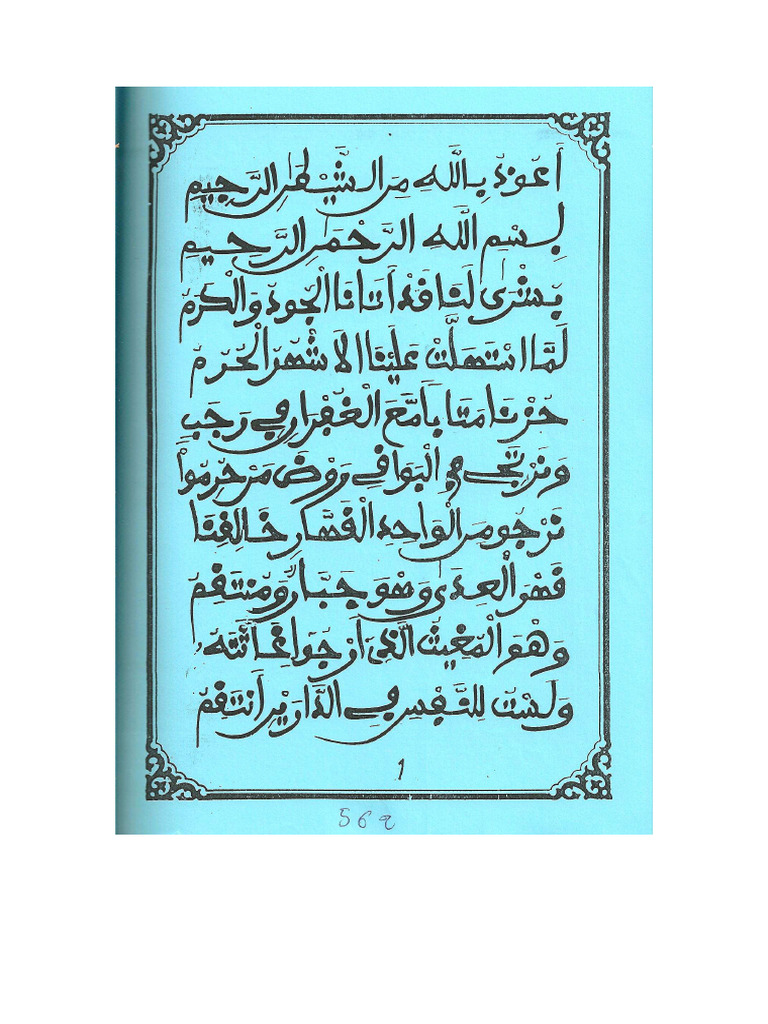 أَعُوذُ بِاللَّهِ مِنَ الشَّيْطَٰنِ الرَّجِيمِ
بِسْمِ اللَّهِ الرَّحْمَٰنِ الرَّحِيمِ
بُشْرَىٰ لَنَا قَدْ أَتَانَا الْجُودُ وَالْكَرَمُ
لَمَّا اسْتَهَلَّتْ عَلَيْنَا الْأَشْهُرُ الْحُرُمُ
حُزْنَا مَتَابًا مَعَ الْغُفْرَانِ فِي رَجَبٍ
وَنَرْتَجِي فِي الْبَوَاقِي رَوْضَ مَنْ حُرِمُوا
نَرْجُو مِنَ الْوَاحِدِ الْقَهَّارِ خَالِقِنَا
قَهْرَ الْعِدَىٰ وَهْوَ جَبَّارٌ وَمُنْتَقِمُ
وَهْوَ الْمُغِيثُ الَّذِي أَرْجُو إِغَاثَتَهُ
وَلَسْتُ لِلنَّفْسِ فِي الدَّارَيْنِ أَنْتَقِمُ
1
569